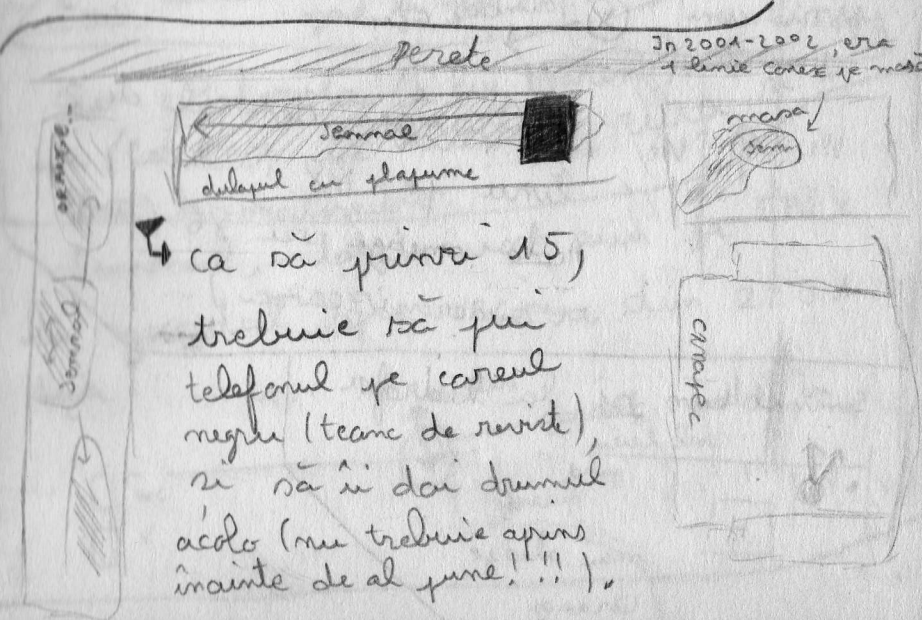 Perete
În 2001-2002, era
1 linie Conex pe masă
semnal
dulapul cu plapume
masa
semn
semnal
CANAPEC
ca să prinzi 15,
trebuie să pui
telefonul pe careul
negru (teanc de reviste),
și să îi dai drumul
acolo (nu trebuie aprins
înainte de al pune!!!).